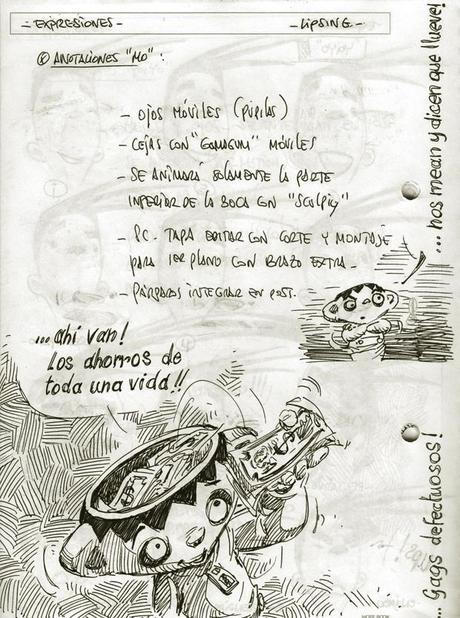 - EXPRESIONES - - LIPSING -
® ANOTACIONES "MO" :
- OJOS MÓVILES (PUPILAS)
- CEJAS CON "GOMAGUM" MÓVILES
- SE ANIMARÁ SOLAMENTE LA PARTE
INFERIOR DE LA BOCA CON "SCULPEY"
- PC. TAPA EDITAR CON CORTE Y MONTAJE
PARA 1ER PLANO CON BRAZO EXTRA -
- PÁRPADOS INTEGRAR EN POST.
... nos mean y dicen que llueve!
... Ahí van!
Los ahorros de
toda una vida!!
... Gags defectuosos!